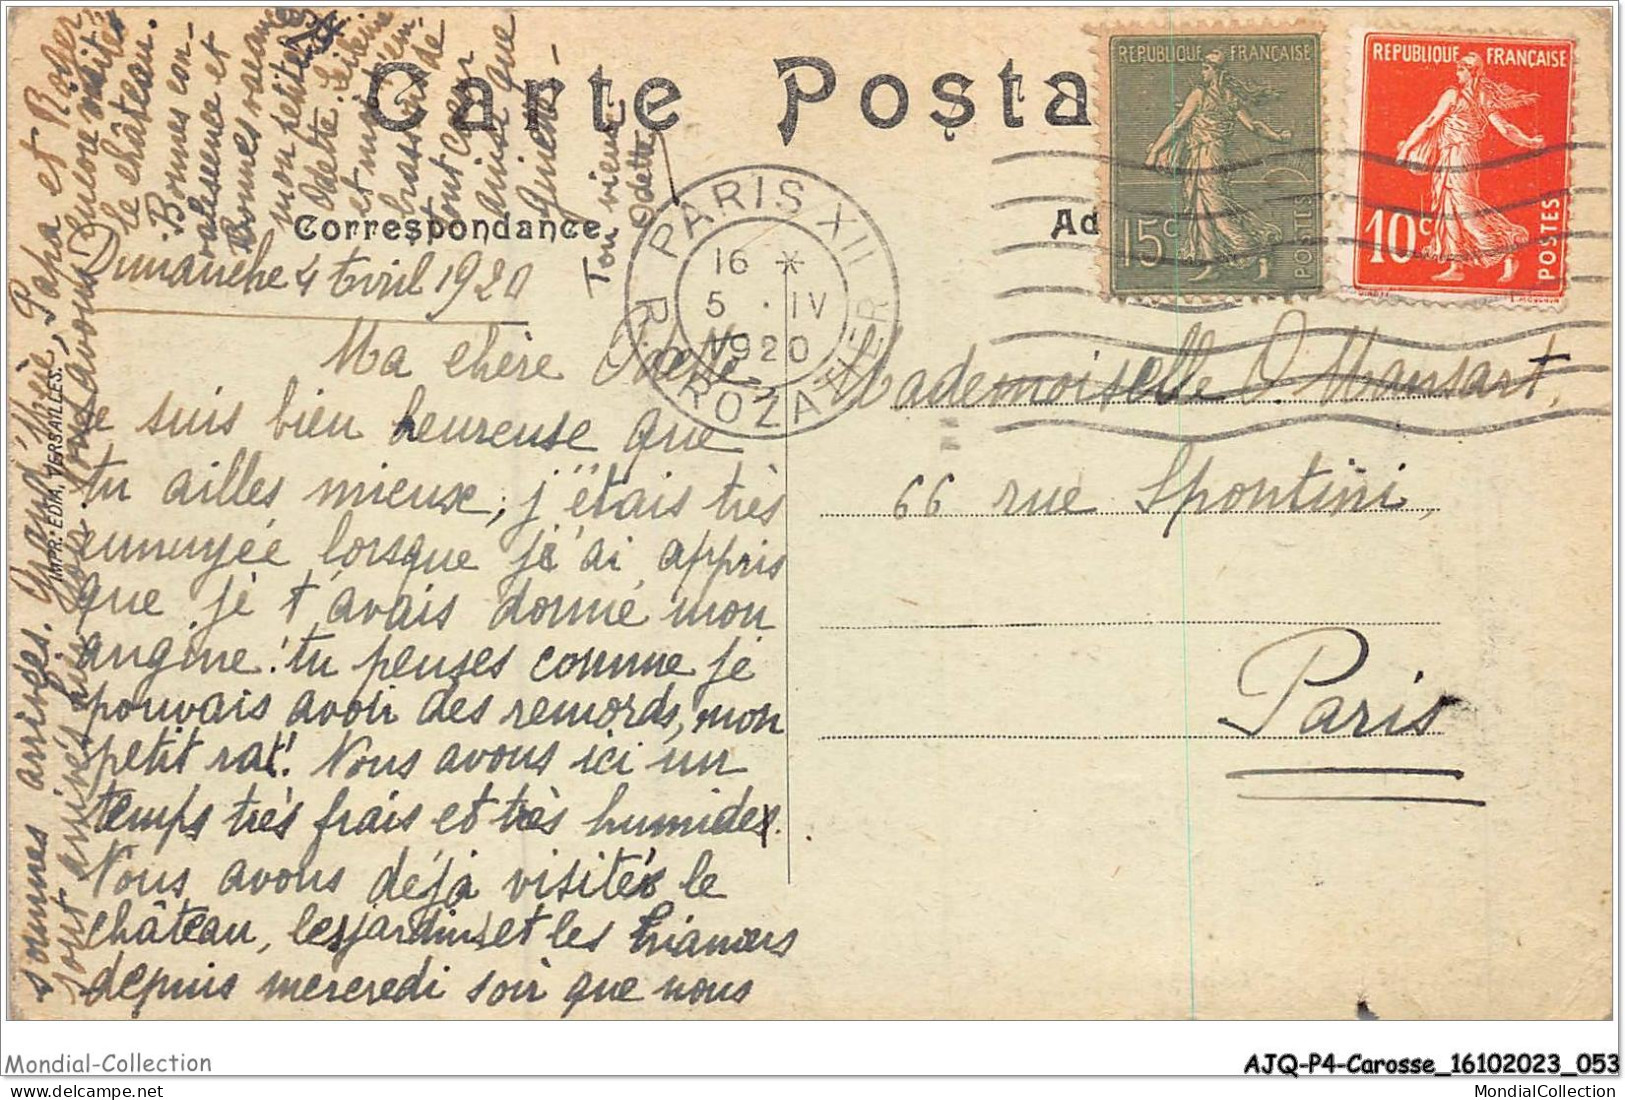 Carte Posta
Correspondance
Ad
REPUBLIQUE FRANÇAISE
15c
POSTES
REPUBLIQUE FRANÇAISE
10c
POSTES
PARIS XII
16 *
5 · IV
1920
R. CROZATIER
Dimanche 4 Avril 1920
Ma chère Odette,
Je suis bien heureuse que
tu ailles mieux, j'étais très
ennuyée lorsque j'ai appris
que je t'avais donné mon
angine! tu penses comme je
pouvais avoir des remords, mon
petit rat! Nous avons ici un
temps très frais et très humide.
Nous avons déjà visité le
château, les jardins et les Trianons
depuis mercredi soir que nous
sommes arrivés. Grand'Mère, Papa et Roger
sont arrivés hier
nous avons
encore visité
le château.
Bonnes con-
valescence et
Bonnes vacances
mon petite
Odette.
et moi t'em-
brassons de
tout cœur
ainsi que
Guiche-
Ton vieux
Odette
IMP. EDIA, VERSAILLES.
Mademoiselle O. Mansart,
66 rue Spontini,
Paris
Mondial-Collection
AJQ-P4-Carosse_16102023_053
MondialCollection